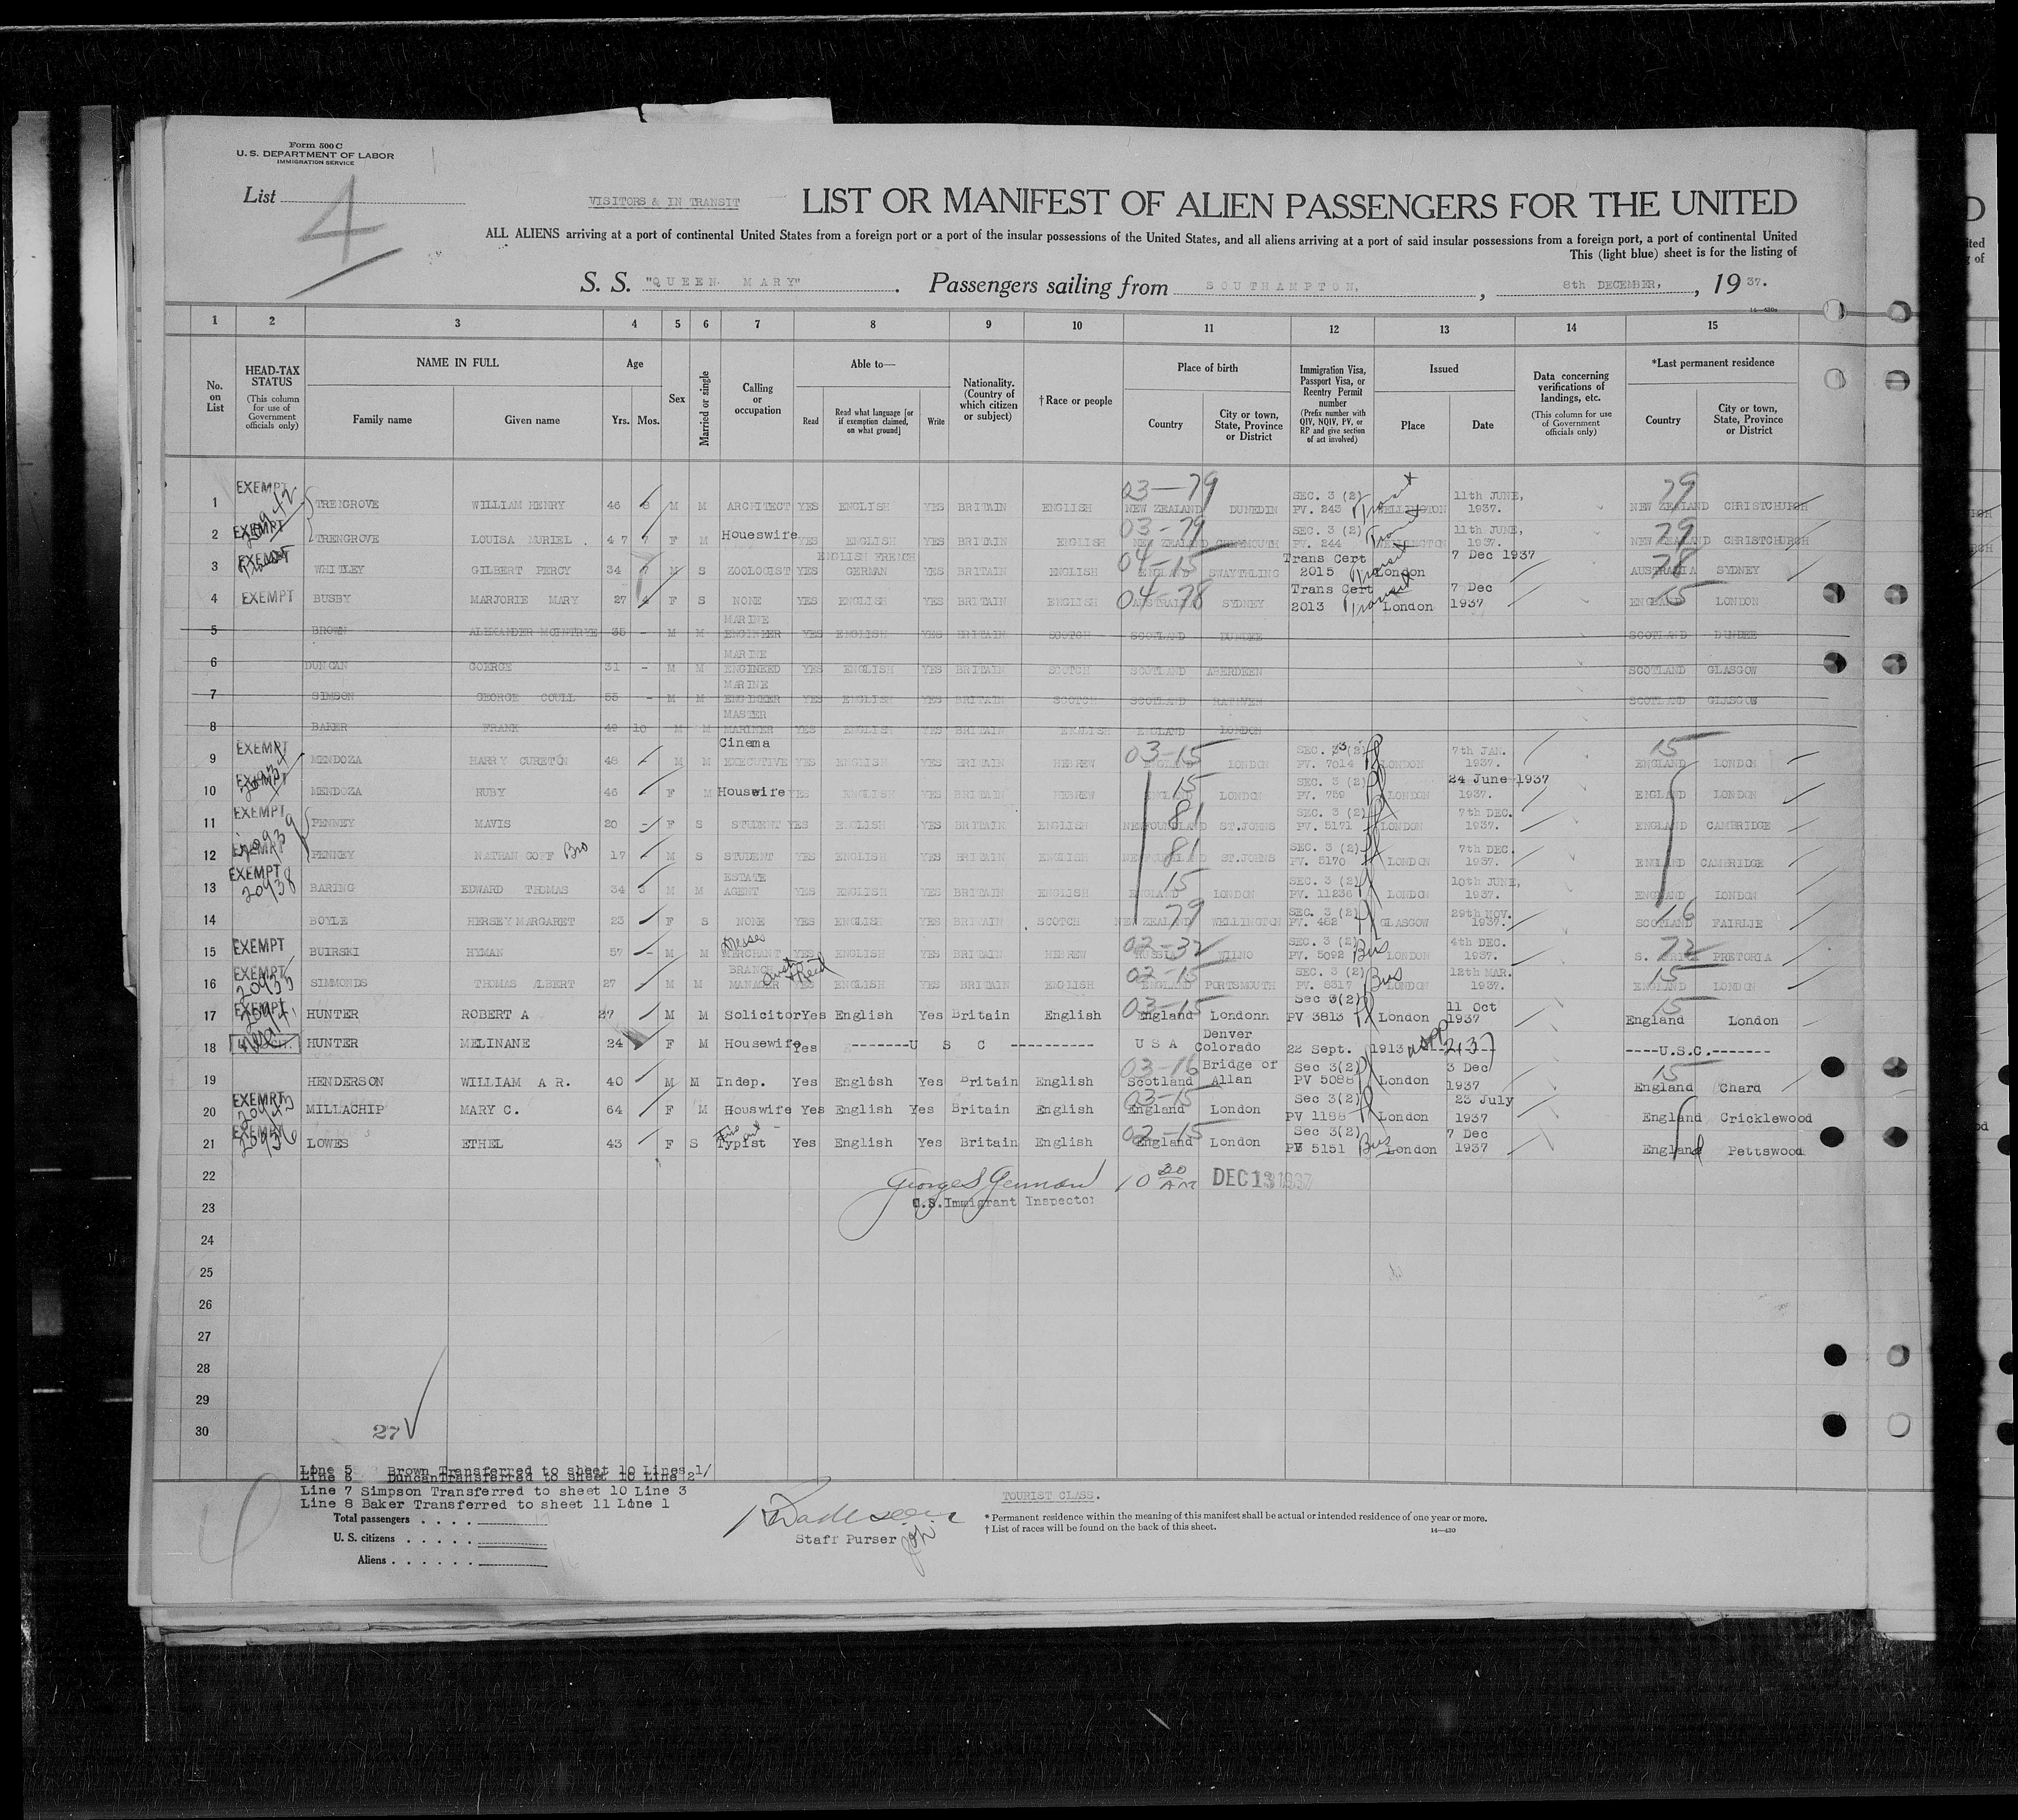 Form 500 C
U. S. DEPARTMENT OF LABOR
IMMIGRATION SERVICE
List 4
VISITORS & IN TRANSIT
LIST OR MANIFEST OF ALIEN PASSENGERS FOR THE UNITED
ALL ALIENS arriving at a port of continental United States from a foreign port or a port of the insular possessions of the United States, and all aliens arriving at a port of said insular possessions from a foreign port, a port of continental United
This (light blue) sheet is for the listing of
S. S. "QUEEN MARY". Passengers sailing from SOUTHAMPTON, 8th DECEMBER, 1937.
14—430a
1 2 3 4 5 6 7 8 9 10 11 12 13 14 15
No. on List
HEAD-TAX STATUS (This column for use of Government officials only)
NAME IN FULL Family name Given name
Age Yrs. Mos.
Sex
Married or single
Calling or occupation
Able to— Read Read what language [or if exemption claimed, on what ground] Write
Nationality. (Country of which citizen or subject)
†Race or people
Place of birth Country City or town, State, Province or District
Immigration Visa, Passport Visa, or Reentry Permit number (Prefix number with QIV, NQIV, PV, or RP and give section of act involved)
Issued Place Date
Data concerning verifications of landings, etc. (This column for use of Government officials only)
*Last permanent residence Country City or town, State, Province or District
1 EXEMPT TRENGROVE WILLIAM HENRY 46 M M ARCHITECT YES ENGLISH YES BRITAIN ENGLISH 03-79 NEW ZEALAND DUNEDIN SEC. 3 (2) PV. 243 Transit WELLINGTON 11th JUNE, 1937. 79 NEW ZEALAND CHRISTCHURCH
2 EXEMPT TRENGROVE LOUISA MURIEL 47 F M Houeswire YES ENGLISH YES BRITAIN ENGLISH 03-79 NEW ZEALAND GREYMOUTH SEC. 3 (2) PV. 244 Transit WELLINGTON 11th JUNE, 1937. 79 NEW ZEALAND CHRISTCHURCH
3 EXEMPT WHITLEY GILBERT PERCY 34 M S ZOOLOGIST YES ENGLISH FRENCH GERMAN YES BRITAIN ENGLISH 04-15 ENGLAND SWAYTHLING Trans Cert 2015 Transit London 7 Dec 1937 78 AUSTRALIA SYDNEY
4 EXEMPT BUSBY MARJORIE MARY 27 F S NONE YES ENGLISH YES BRITAIN ENGLISH 04-78 AUSTRALIA SYDNEY Trans Cert 2013 Transit London 7 Dec 1937 15 ENGLAND LONDON
5 BROWN ALEXANDER MCINTRYE 35 - M M MARINE ENGINEER YES ENGLISH YES BRITAIN SCOTCH SCOTLAND DUNDEE SCOTLAND DUNDEE
6 DUNCAN GOERGE 31 - M M MARINE ENGINEED YES ENGLISH YES BRITAIN SCOTCH SCOTLAND ABERDEEN SCOTLAND GLASGOW
7 SIMSON GEORGE COULL 55 - M M MARINE ENGINEER YES ENGLISH YES BRITAIN SCOTCH SCOTLAND RATHVEN SCOTLAND GLASGOW
8 BAKER FRANK 49 10 M M MASTER MARINER YES ENGLISH YES BRITAIN ENGLISH ENGLAND LONDON
9 EXEMPT MENDOZA HARRY CURETON 48 M M Cinema EXECUTIVE YES ENGLISH YES BRITAIN HEBREW 03-15 ENGLAND LONDON SEC. 3 (2) PV. 7014 LONDON 7th JAN. 1937. 15 ENGLAND LONDON
10 EXEMPT MENDOZA RUBY 46 F M Housewire YES ENGLISH YES BRITAIN HEBREW 15 ENGLAND LONDON SEC. 3 (2) PV. 759 LONDON 24 June 1937 1937. ENGLAND LONDON
11 EXEMPT PENNEY MAVIS 20 - F S STUDENT YES ENGLISH YES BRITAIN ENGLISH 81 NEWFOUNDLAND ST.JOHNS SEC. 3 (2) PV. 5171 LONDON 7th DEC. 1937. ENGLAND CAMBRIDGE
12 EXEMPT 20939 PENNEY NATHAN GOFF Bro 17 M S STUDENT YES ENGLISH YES BRITAIN ENGLISH 81 NEWFOUNDLAND ST.JOHNS SEC. 3 (2) PV. 5170 LONDON 7th DEC. 1937. ENGLAND CAMBRIDGE
13 EXEMPT 20938 BARING EDWARD THOMAS 34 M M ESTATE AGENT YES ENGLISH YES BRITAIN ENGLISH 15 ENGLAND LONDON SEC. 3 (2) PV. 11236 LONDON 10th JUNE, 1937. ENGLAND LONDON
14 BOYLE HERSEY MARGARET 23 F S NONE YES ENGLISH YES BRITAIN SCOTCH 79 NEW ZEALAND WELLINGTON SEC. 3 (2) PV. 462 GLASGOW 29th NOV. 1937. 16 SCOTLAND FAIRLIE
15 EXEMPT BUIRSKI HYMAN 57 - M M MERCHANT YES ENGLISH YES BRITAIN HEBREW 02-32 RUSSIA WILNO SEC. 3 (2) PV. 5092 Bus LONDON 4th DEC. 1937. 72 S. AFRICA PRETORIA
16 EXEMPT 20935 SIMMONDS THOMAS ALBERT 27 M M BRANCH MANAGER YES ENGLISH YES BRITAIN ENGLISH 02-15 ENGLAND PORTSMOUTH SEC. 3 (2) PV. 8317 Bus LONDON 12th MAR. 1937. 15 ENGLAND LONDON
17 EXEMPT HUNTER ROBERT A 27 M M Solicitor Yes English Yes Britain English 03-15 England Londonn Sec 3(2) PV 3813 London 11 Oct 1937 15 England London
18 HUNTER MELINANE 24 F M Housewife Yes -------U S C ---------- U S A Denver Colorado 22 Sept. 1913 ----U.S.C.-------
19 HENDERSON WILLIAM A R. 40 M M Indep. Yes English Yes Britain English 03-16 Scotland Bridge of Allan Sec 3(2) PV 5088 London 3 Dec 1937 15 England Chard
20 EXEMPT MILLACHIP MARY C. 64 F M Houswife Yes English Yes Britain English 03-15 England London Sec 3(2) PV 1188 London 23 July 1937 England Cricklewood
21 EXEMPT 20936 LOWES ETHEL 43 F S Typist Yes English Yes Britain English 02-15 England London Sec 3(2) PV 5151 Bus London 7 Dec 1937 England Pettswood
22 George S German 10 30 AM DEC 13 1937
23 U.S.Immigrant Inspector
24
25
26
27
28
29
30
27
Line 5 Brown Transferred to sheet 10 Lines 1/
Line 6 Duncan Transferred to sheet 10 Line 2
Line 7 Simpson Transferred to sheet 10 Line 3
Line 8 Baker Transferred to sheet 11 Line 1
Total passengers . . . .
U. S. citizens . . . . .
Aliens . . . . . .
Staff Purser
TOURIST CLASS.
* Permanent residence within the meaning of this manifest shall be actual or intended residence of one year or more.
† List of races will be found on the back of this sheet.
14—430